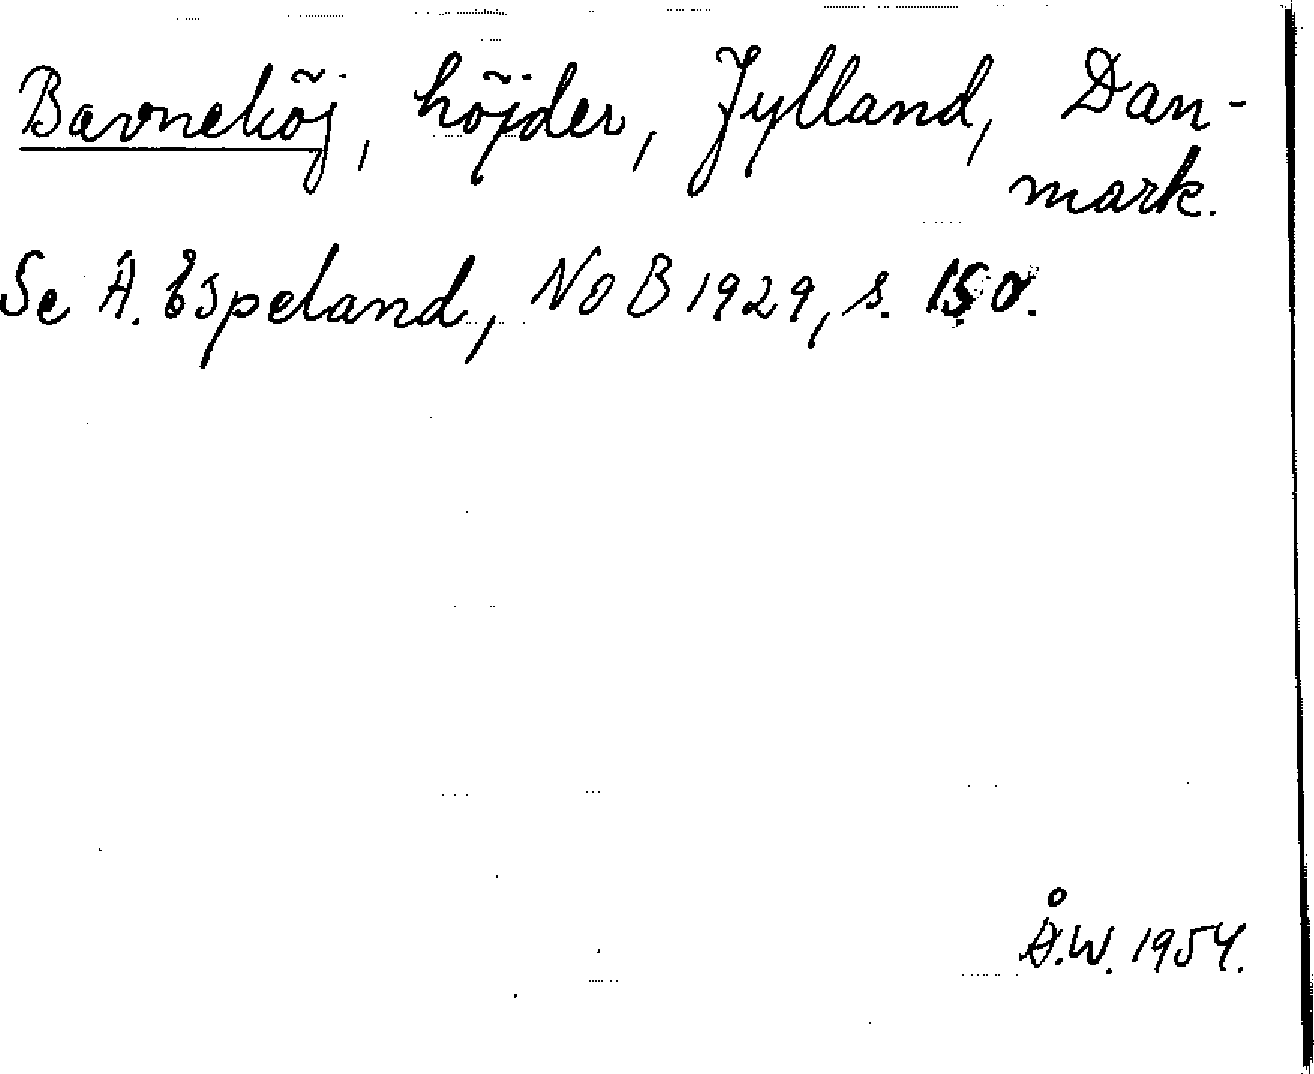 Bavneköj, höjder, Jylland, Dan-
mark.
Se A. Espeland, NoB 1929, s. 150.
Å.W. 1954.